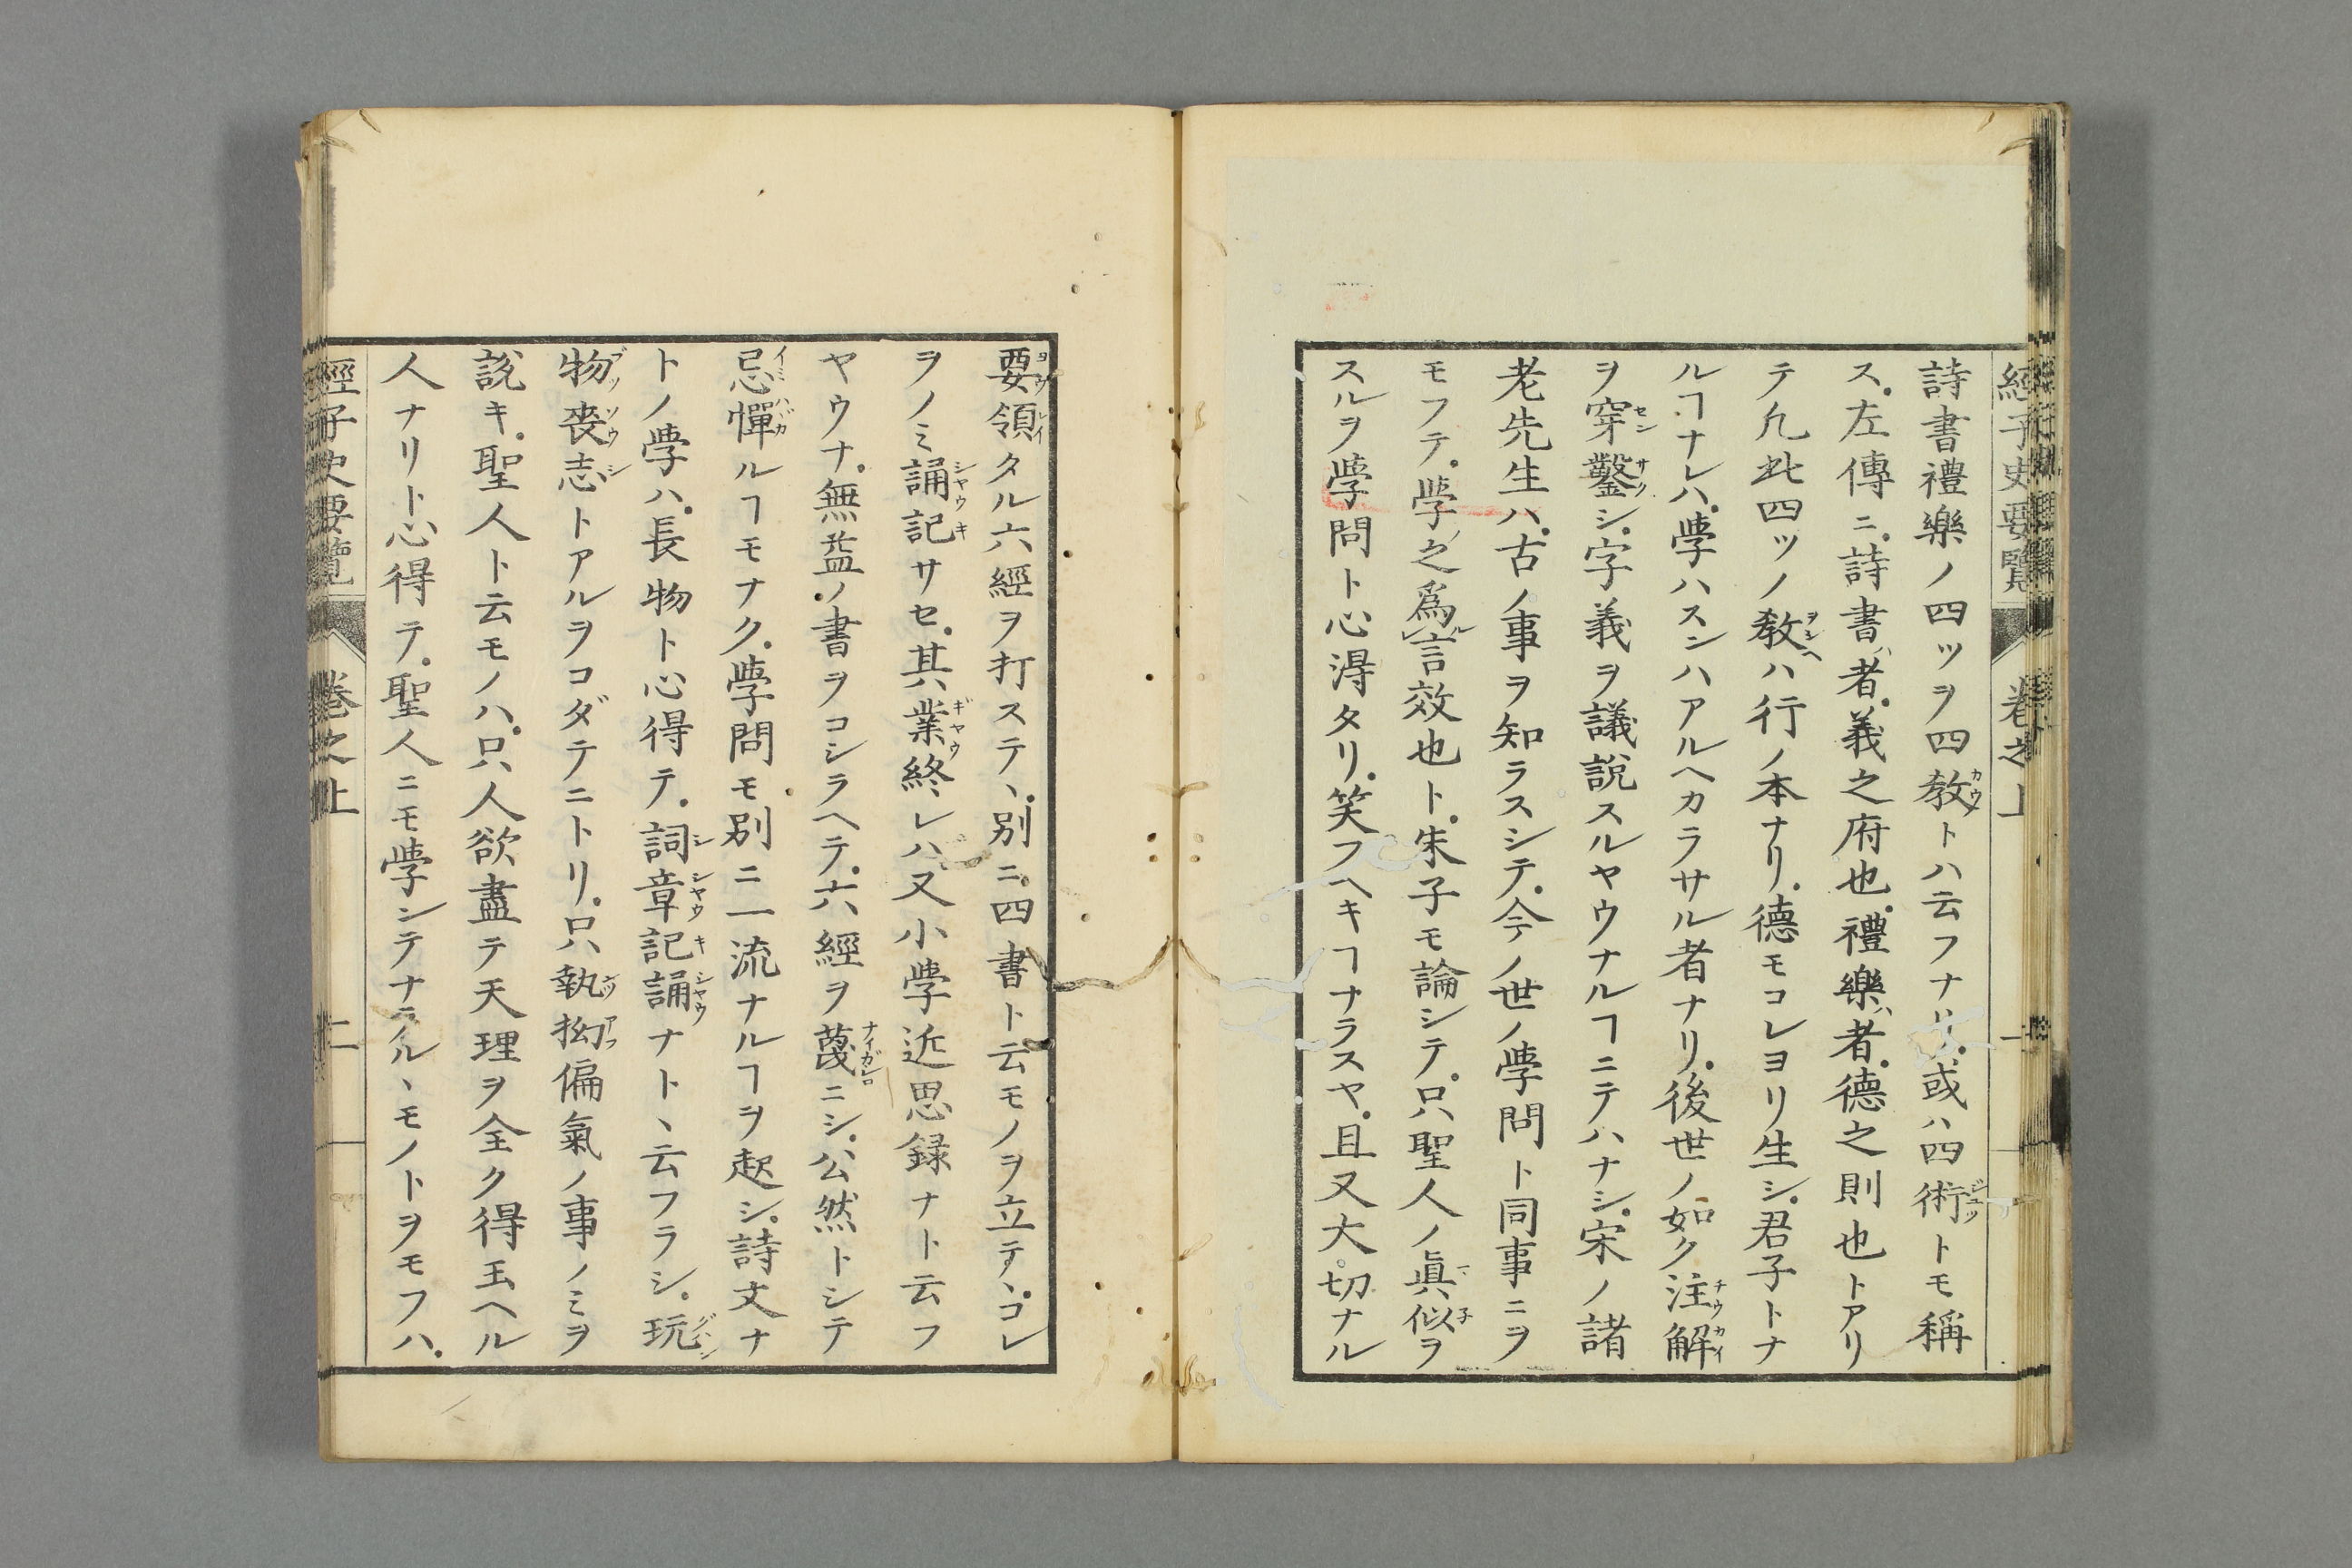 經子史要覽 卷之上 一
詩書禮樂ノ四ッヲ四教トハ云フナリ。或ハ四術トモ稱
ス。左傳ニ。詩書ハ者。義之府也。禮樂ハ者。德之則也トアリ
テ凡此四ッノ教ハ行ノ本ナリ。德モコレヨリ生シ。君子トナ
ルヿナレハ。學ハスンハアルヘカラサル者ナリ。後世ノ如ク注解
ヲ穿鑿シ。字義ヲ議說スルヤウナルヿニテハナシ。宋ノ諸
老先生ハ。古ノ事ヲ知ラスシテ。今ノ世ノ學問ト同事ニヲ
モフテ。學ノ之爲ル言レ效也ト。朱子モ論シテ。只聖人ノ眞似ヲ
スルヲ學問ト心得タリ。笑フヘキヿナラスヤ。且又大切ナル
要領タル六經ヲ打ステヽ。別ニ。四書ト云モノヲ立テヽ。コレ
ヲノミ誦記サセ。其業終レハ。又小學近思録ナト云フ
ヤウナ。無益ノ書ヲコシラヘテ。六經ヲ蔑ニシ。公然トシテ
忌憚ルヿモナク。學問モ別ニ一流ナルヿヲ起シ。詩文ナ
トノ學ハ。長物ト心得テ。詞章記誦ナトヽ云フラシ。玩
物喪志トアルヲコダテニトリ。只執拗偏氣ノ事ノミヲ
説キ。聖人ト云モノハ。只人欲盡テ天理ヲ全ク得玉ヘル
人ナリト心得テ。聖人ニモ學シテナラルヽモノトヲモフハ。
經子史要覽 卷之上 二